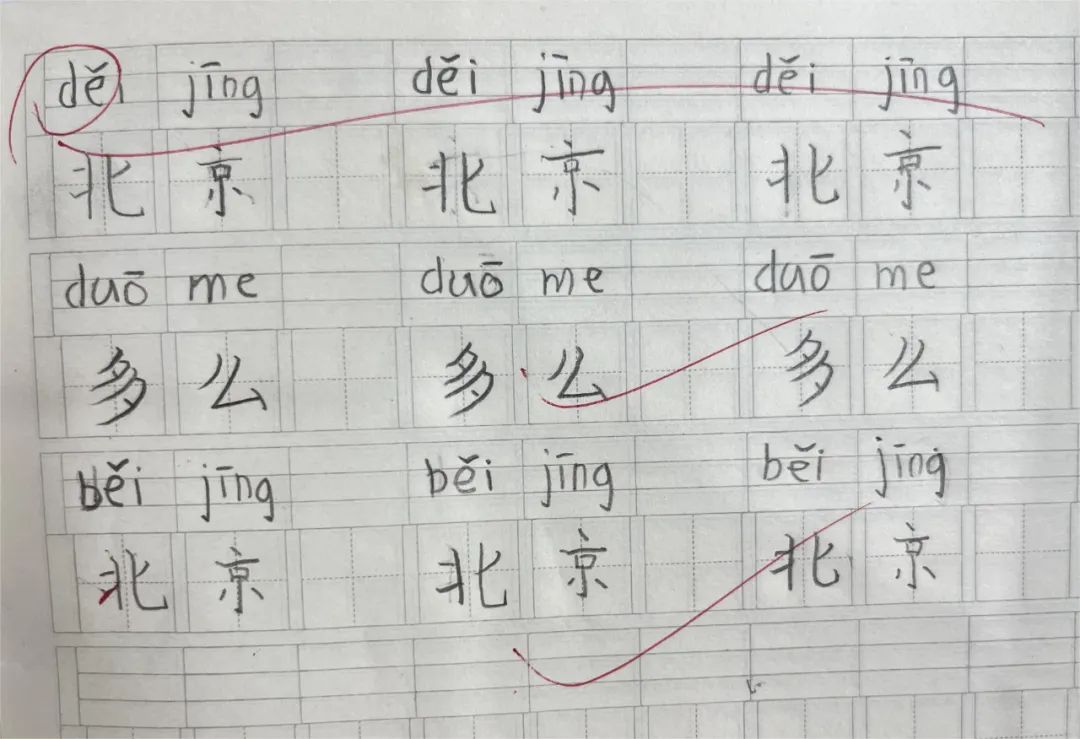 děi jīng děi jīng děi jīng
北京 北京 北京
duō me duō me duō me
多么 多么 多么
běi jīng běi jīng běi jīng
北京 北京 北京